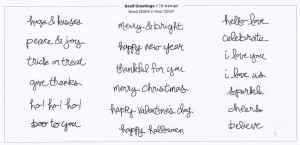 Good Greetings • 19 stamps
hugs & kisses
peace & joy
trick or treat
give thanks
ho! ho! ho!
boo to you
merry & bright
happy new year
thankful for you
merry christmas
happy valentine's day
happy halloween
hello love
celebrate
i love you
i love us
sparkle
cheers
believe